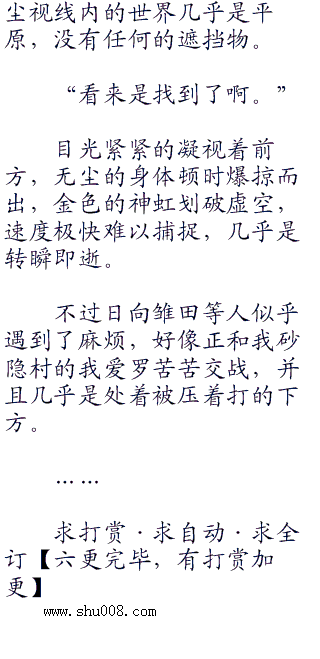 尘视线内的世界几乎是平
原，没有任何的遮挡物。
“看来是找到了啊。”
目光紧紧的凝视着前
方，无尘的身体顿时爆掠而
出，金色的神虹划破虚空，
速度极快难以捕捉，几乎是
转瞬即逝。
不过日向雏田等人似乎
遇到了麻烦，好像正和我砂
隐村的我爱罗苦苦交战，并
且几乎是处着被压着打的下
方。
……
求打赏·求自动·求全
订【六更完毕，有打赏加
更】
www.shu008.com